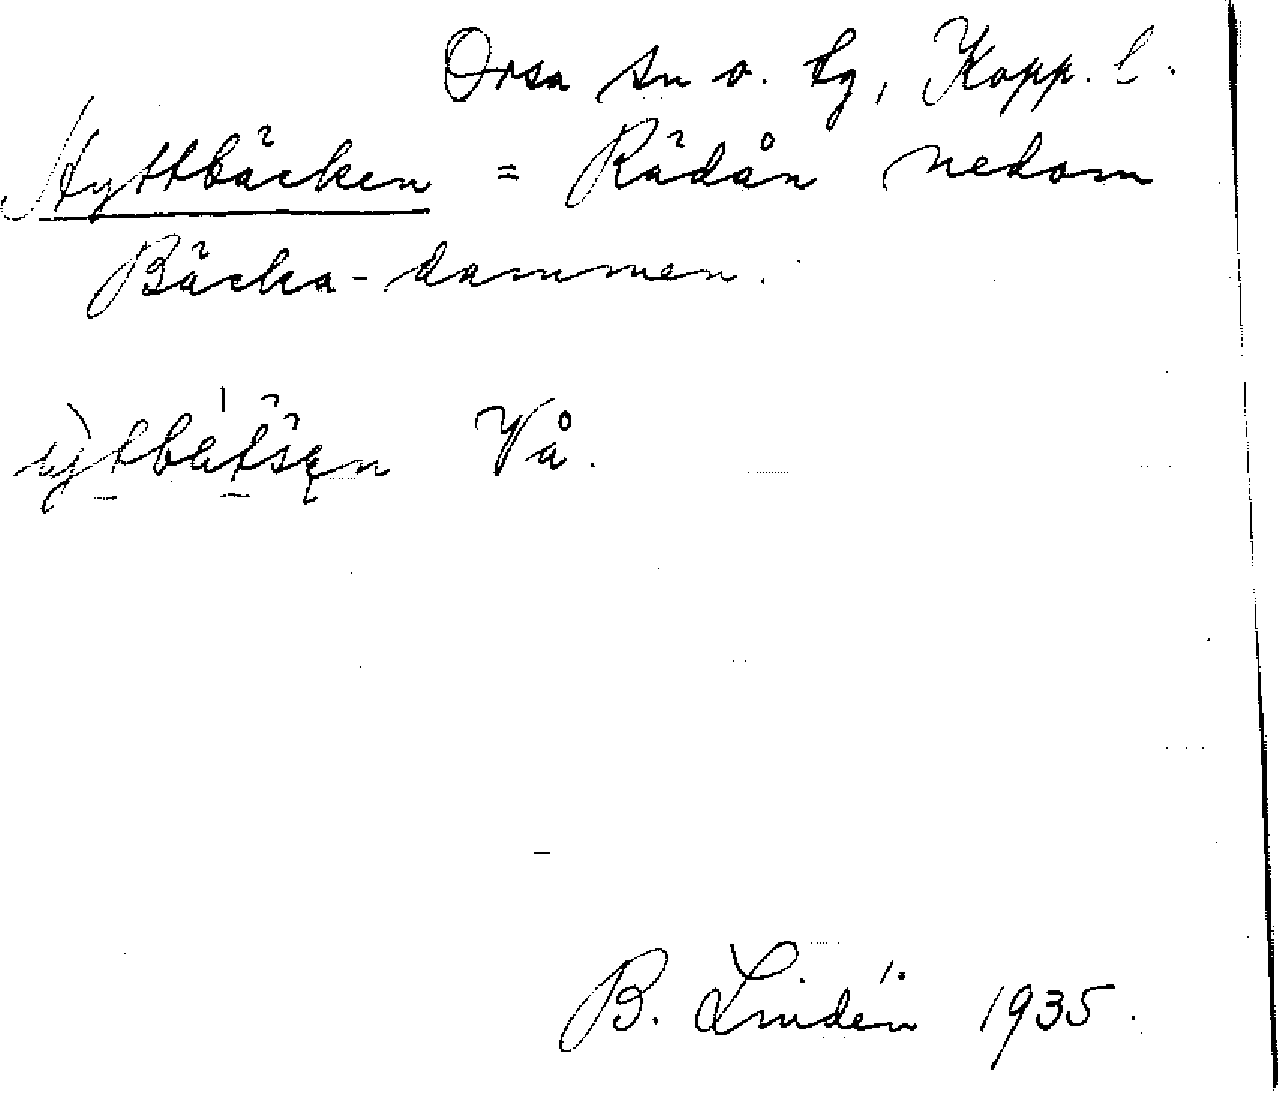 Orsa sn o. tg, Kopp. l.
Hyttbäcken = Rädån nedom
Bäcka-dammen.
Vå.
B. Lindén 1935.